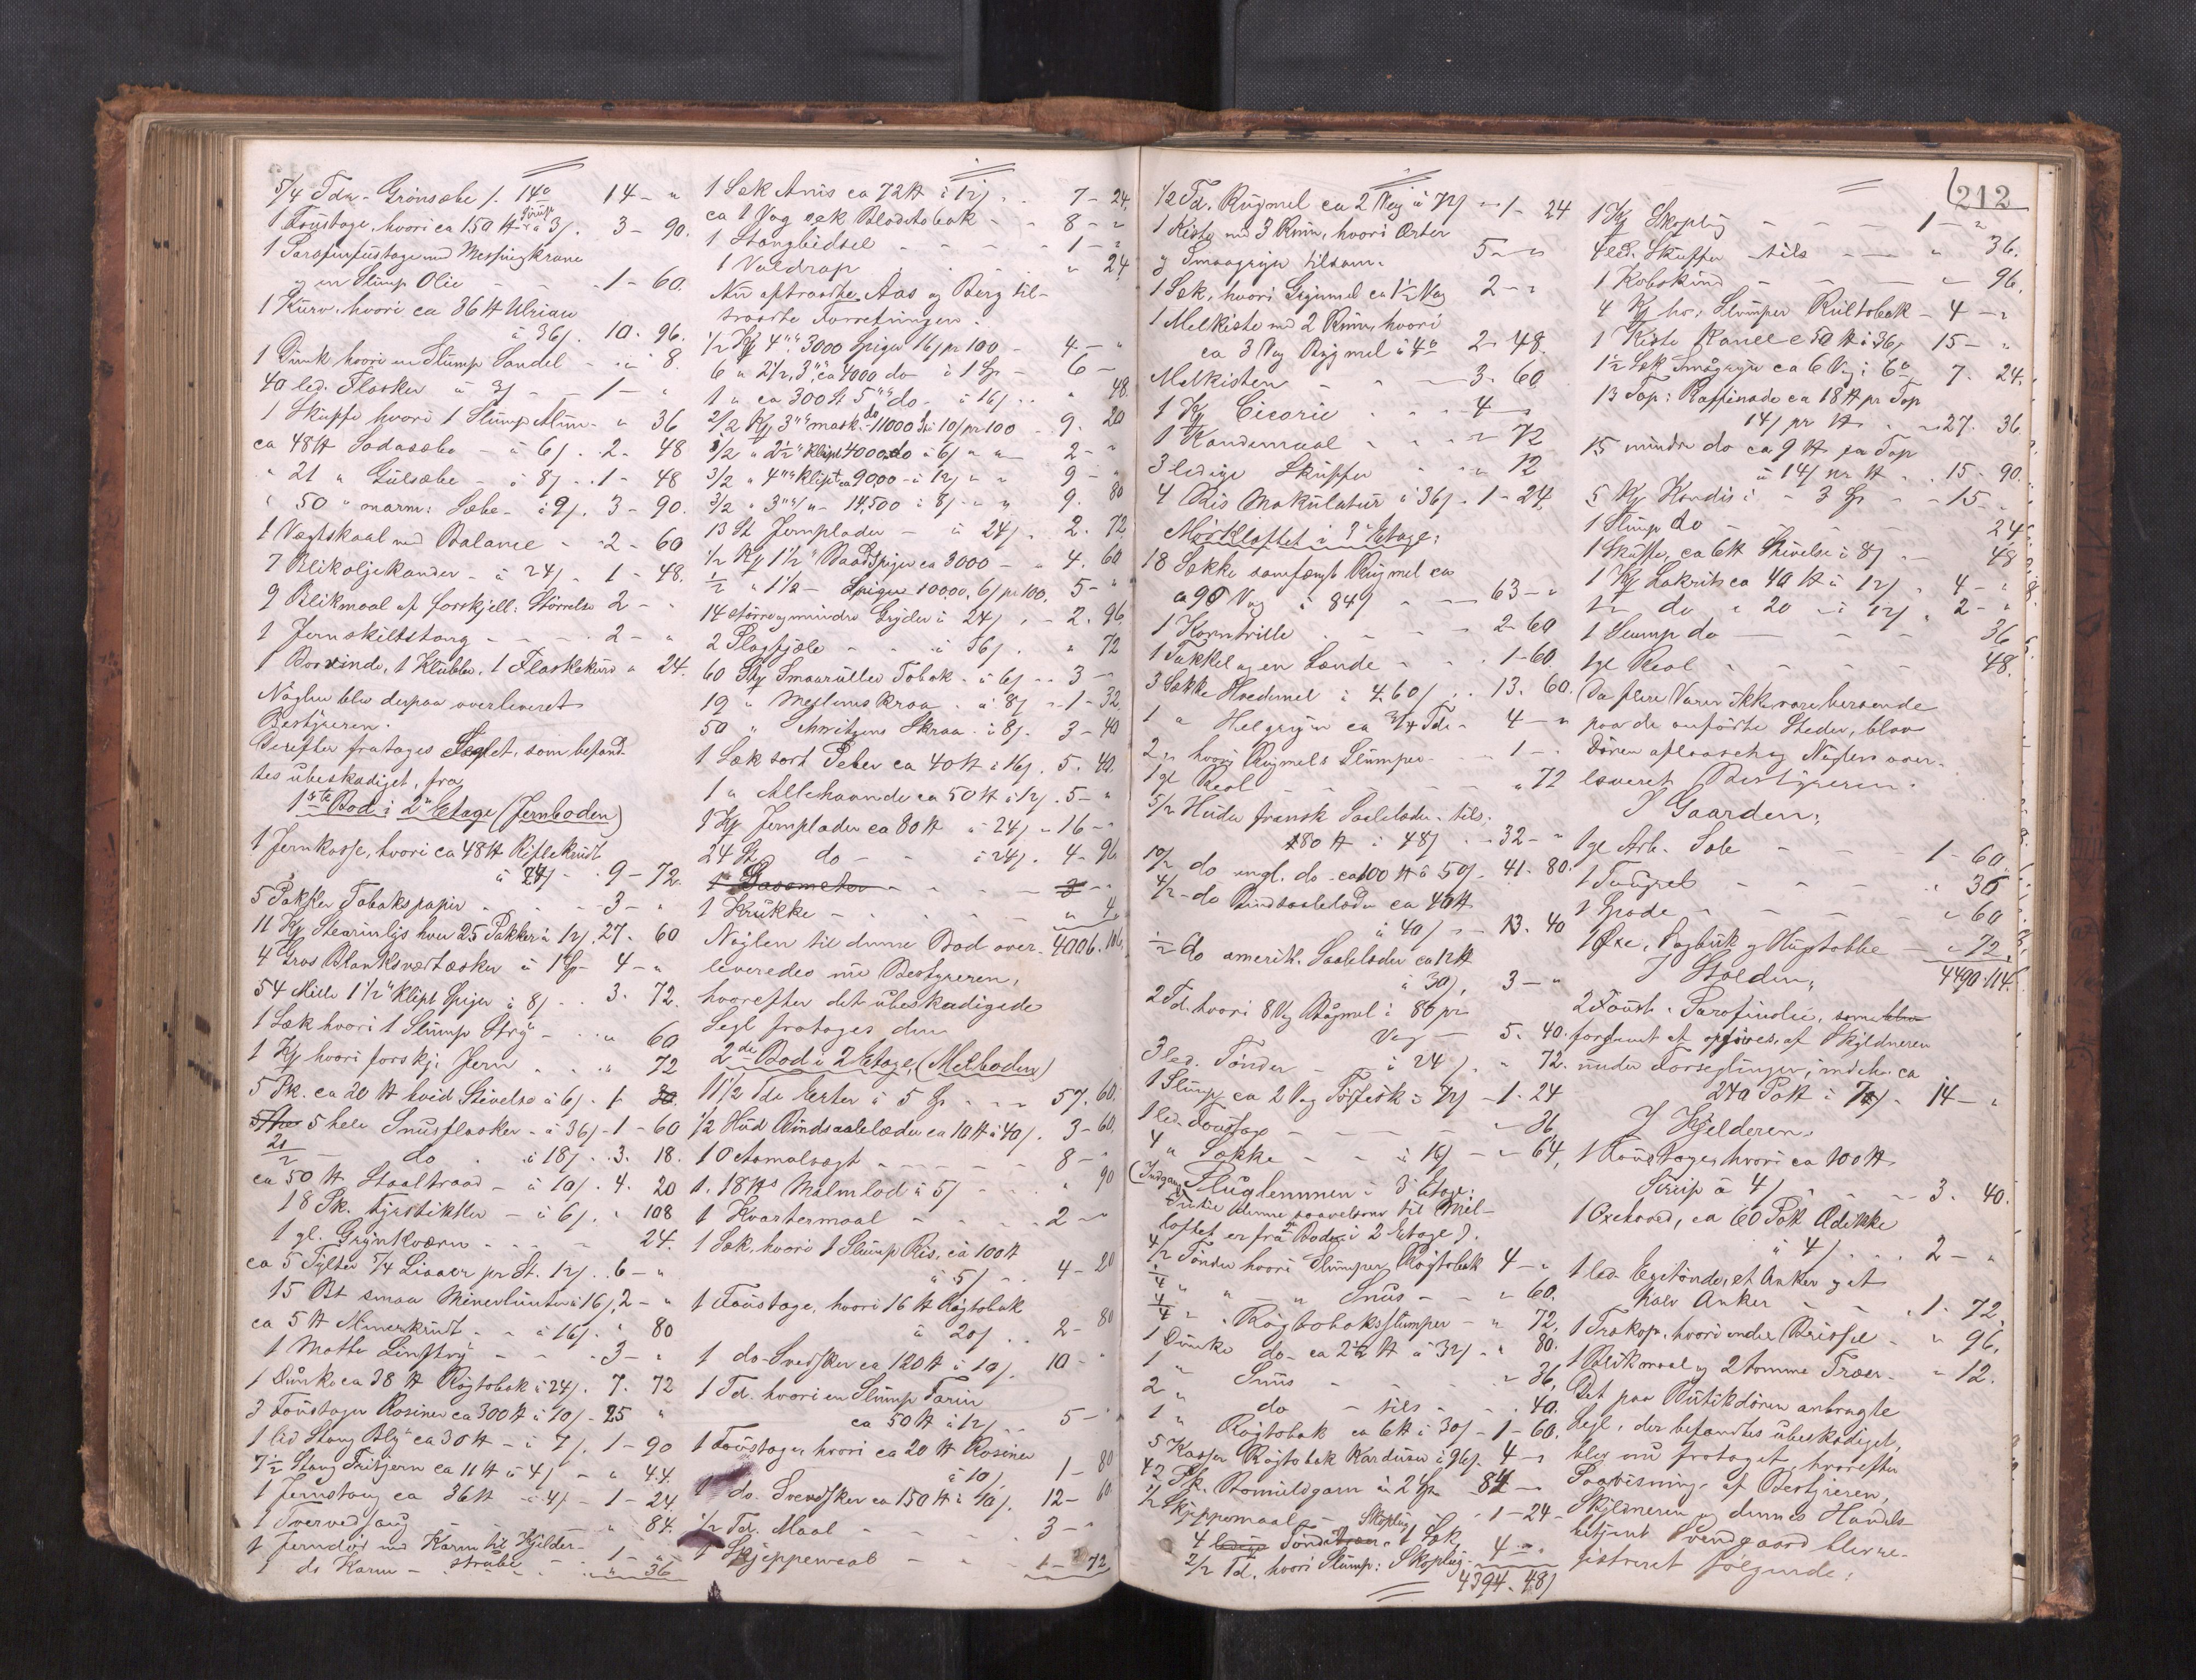 5/4 Tdr. Grønsæbe /. 14° 14 - "
1 Foustage, hvori ca 150 ℔ Sirup à 3/. 3 - 90.
1 Parafinfustage med Messingkrane
og en Slump Olie - - 1 - 60.
1 Kurv, hvori ca 36 ℔
à 36/. 10. 96.
1 Dunk hvori en Slump Sandel - " 8.
40 led. Flasker à 3/ - 1 - "
1 Skuffe hvori 1 Slump Alun - " 36
ca 48 ℔ Sodasæbe - à 6/ . 2. 48
" 21 " Gulsæbe - à 8/ - 1 - 48
" 50 " marm: Sæbe - à 9/. 3 - 90.
1 Vægtskaal med Balance - 2 - 60
7 Blikoljekander - à 24/ - 1 - 48.
9 Blikmaal af forskjell: Størrelse 2 - "
1 Jernskiltstang - - 2 - "
1 , 1 Klubbe, 1 Flaskekurv " 24.
Nøglen blev derpaa overleveret
Bestyreren.
Derefter fratages Seglet, som befand-
tes ubeskadiget, fra
1ste Bod i 2n Etage (Jernboden)
1 Jernkasse, hvori ca 48 ℔ Riflekrudt
à 24/ - 9 - 72.
5 Pakker Tobakspapir - - 3 - "
11 Kg Stearinlys hver 25 Pakker à 12/. 27. 60
4 Gros Blanksværtæsker à 1 Sp - 4 - "
54 Mille 1 1/2" klipt Spiger à 8/ . 3. 72.
1 Sæk hvori 1 Slump Stry - - " 60
1 Kg hvori forskj. Jern . . " 72
5 Pk. ca 20 ℔ hvid Stivelse à 6/. 1 -
5 hele Snusflasker - à 36/ - 1 - 60
21/2 — do . à 18/ . 3. 18.
ca 50 ℔ Staaltraad - à 10/. 4. 20
18 Pk. Fyrstikker - à 6/. " 108
1 gl. Grynkværn - - 24.
ca 5 Tylter 5/4 Liaaer pr St. 12/. 6 - "
15 Bt smaa Minerlunter à 16/, 2 - "
ca 5 ℔ Minerkrudt - - à 16/. " 80
1 Matte Linstry - - - 3 - "
1 Dunk ca 38 ℔ Røgtobak à 24/. 7. 72
3 Foustager Rosiner ca 300 ℔ à 10/ - 25 "
1 lid Stang Bly ca 30 ℔ - à 7/. 1 - 90
7 1/2 Stang Tritjern ca 11 ℔ à 4/ - " 44.
1 Jernstang ca 36 ℔ - à 4/ - 1 - 24
1 Tvervedsaug " 84.
1 Jerndør med Karm til Kjelder- 1 - "
1 do Karm - strøbe - " 36
1 Sæk Anis ca 72 ℔ à 12/ . 7 - 24.
ca 1 Vog sæk Bladtobak - - 8 - "
1 Stangbidsel - - - 1 - "
1 Valdrap " 24
Nu aftraadte Aas og Berg til-
traadte Forretningen.
1/2 Kg 4"" 3000 Spiger 16/ pr 100 - 4 - "
6 " 2 1/2, 3"" ca 4000 do à 1 Sp - 6 -
1 " ca 300 St 5"" do - à 16/ . " 48
2/2 Kg 3"" mask. do 11000 St à 10/ pr 100 - 9. 20
3/2 " 2 1/2" klipt 4000 do à 6/ " " 2 - "
3/2 " 4"" klipt ca 9000 - à 12/ " " 9 - "
3/2 " 3""/ " - 14,500 à 8/ - " 9. 80
13 St Jernplader - à 24/ . 2. 72
1/2 Kg 1 1/2" Baadspiger ca 3000 - " 4. 60
1/2 " 1 1/2 - Spiger 10000, 6/ pr 100. 5 - "
14 større og mindre Gryder à 24/ . - 2. 96
2 Plogfjæle - - à 36/. " 72
60 Stg Smaarullet Tobak à 6/ - 3 -
19 " Mellemskraa . à 8/ - 1 - 32
50 " Schwitzens Skraa à 8/. 3 - 40
1 Sæk sort Peber ca 40 ℔ à 16/. 5. 40.
1 " Allehaande ca 50 ℔ à 12/. 5 - "
1 Kg Jernplader ca 80 ℔ à 24/ - 16 - "
24 St do - à 24/. 4 - 96
1 Gasometer - - - -
1 Krukke - . - - " 4.
Nøglen til denne Bod over- 4006. 106.
leveredes nu Bestyreren,
hvorefter det ubeskadigede
Segl fratages den
2den Bod i 2 Etage, (Melboden)
11 1/2 Tdr Erter à 5 Sp - - 57. 60.
1/2 Hud Bindsaalelæder ca 10 ℔ à 40/. 3 - 60.
1 Ostomalvægt - - - 8 - "
1. 18 ℔s Malmlod à 5/ - " 90
1 Kvartermaal - - - 2 - "
1 Sæk, hvori 1 Slump Ris, ca 100 ℔
à 5/ - 4 - 20
1 Foustage, hvori 16 ℔ Røgtobak
à 20/ . . 2 - 80
1 do - Svedsker ca 120 ℔ à 10/. 10 - "
1 Td. hvori en Slump Farin
ca 50 ℔ à 12/ 5 - "
1 Foustage, hvori ca 20 ℔ Rosiner
à 10/ 1 - 80
1 do. Svedsker ca 150 ℔ à 10/. 12 - 60
1/2 Td. Maal - - - 3 - "
1 Skjeppemaal - - - 1 - 72
212
1/2 Td. Rugmel ca 2 Vog à 72/ - 1 - 24
1 Kiste med 3 Rum, hvori Erter
og Smaagryn tilsam. 5 - "
1 Sæk, hvori Grynmel ca 1 1/2 Vog 2 - "
1 Melkiste med 2 Rum, hvori
ca 3 Vog Bygmel à 4° 2. 48.
Melkisten - - 3. 60
1 Kg Cicorie - - 4 - "
1 Kandemaal - - - 72
3 ledige Skuffer - - " 12
4 Ris Makulatur à 36/. 1 - 24.
Mørkloftet i 3 Etage:
18 Sække samfængt Rugmel ca
à 90 Vog à 84/ - 63 - "
1 Korntrille . - - - 2 - 60
1 Takkel og en Lænde - - 1 - 60.
3 Sække Hvedemel à 4.60/ . 13. 60.
1 " Helgryn ca 3/4 Td. - 4 - "
2 " hvori Rugmels Slumper - - 1 - "
1 gl Reol - - - - " 72
5/2 Huder fransk Saalelæder. tils.
180 ℔ à 48/ - 32 - "
10/2 do engl. do - ca 100 ℔ à 50/. 41. 80.
4/2 - do Bindsaalelæder ca 40 ℔
à 40/ - 13. 40
1/2 do amerik. Saalelæder ca 12 ℔
à 30/, 3 - "
2 Td. hvori 8 Vog Bygmel à 86 pr
Vog — 5. 40.
3 led. Tønder - à 24/. " 72.
1 Slump ca 2 Vog Tørfisk à 72/ - 1 - 24
1 led. Foustage - - - - " 36
4 " Sække - - à 16/ - " 64,
(Indgang Fluglemmen i 3 Etage:
til denne saavelsom til Mel-
loftet er fra Boder i 2 Etage).
4/2 Tønder hvori Slumper Røgtobak 4 - "
1/4 " " - " Snus - - " 60.
4/4 " . Røgtobaksslumper - " 72,
1 Dunke do - ca 2 1/2 ℔ à 32/ - " 80.
1 " Snus - - - " 36,
2 " do - tils - . 40.
1 " Røgtobak ca 6 ℔ à 30/ - 1 - 60.
5 Kasser Røgtobak Karduser à 96/. 4 - "
42 Pk. Bomuldgarn à 2 Sp 84 -
1/2 Skjeppemaal - - 1 - 24 -
4 ledige Tønder Skoplug, 1 Sæk
2/2 Td. hvori Slump: Skoplug - 4 - "
4394. 48/
1 Kg Skoplug - - - 1 - "
4 led. Skuffer tils - - " 36.
1 Kobskind - - - - " 96.
4 Kg hv. Slumper Rultobak - 4 - "
1 Kiste Kanel ca 50 ℔ à 36/ 15 - "
1 1/2 Sæk Smågryn ca 6 Vog à 6° 7. 24.
13 Top: Raffinade ca 18 ℔ pr Top
14/ pr ℔ - - 27. 36.
15 mindre do ca 9 ℔ pr Top
à 14/ pr ℔ . . 15. 90.
5 Kg Kandis à - 3 Sp - - 15 -
1 Slump do - - - - 24
1 Skuffe, ca 6 ℔ Stivelse à 8/ - 48
1 Kg Lakrits ca 40 ℔ à 12/ . 4 - "
1/2 do à 20 - à 12/. 2 - "
1 Slump do — - - 36
1 gl Reol - - - - 48.
Da flere Varer ikke vare beroende
paa de anførte Steder, blev
Døren aflaaset og Nøglen over-
leveret Bestyreren.
I Gaarden:
1 gl Arb. Sele - - - - 1 - 60.
1 - - - - " 36
1 - - - - " 60
1 Øxe, Sagbuk og Hugstabbe - " 72.
I Stalden: 4490. 114.
2 Foust. Parafinolie, som blev
fordømt at opføres af Skyldneren
under Forseglingen, indeh. ca
240 Pott à 7/ - 14 - "
I Kjelderen.
1 Foustage, hvori ca 100 ℔
Sirup à 4/ - - 3. 40.
1 Oxehoved, ca 60 Pott Edikke
à 4/ . . . 2 - "
1 led. Egetønde, et Anker og et
halv Anker - - . 1 - 72.
1 Trækop, hvori endel - " 96.
1 Blikmaal og 2 tomme Træer - " 12.
Det paa Butikdøren anbragte
Segl, der befandtes ubeskadiget,
blev nu frataget, hvorefter
Paavisning af Bestyreren,
Skyldneren og dennes Handels-
betjent Svendgaard blev re-
gistreret følgende: